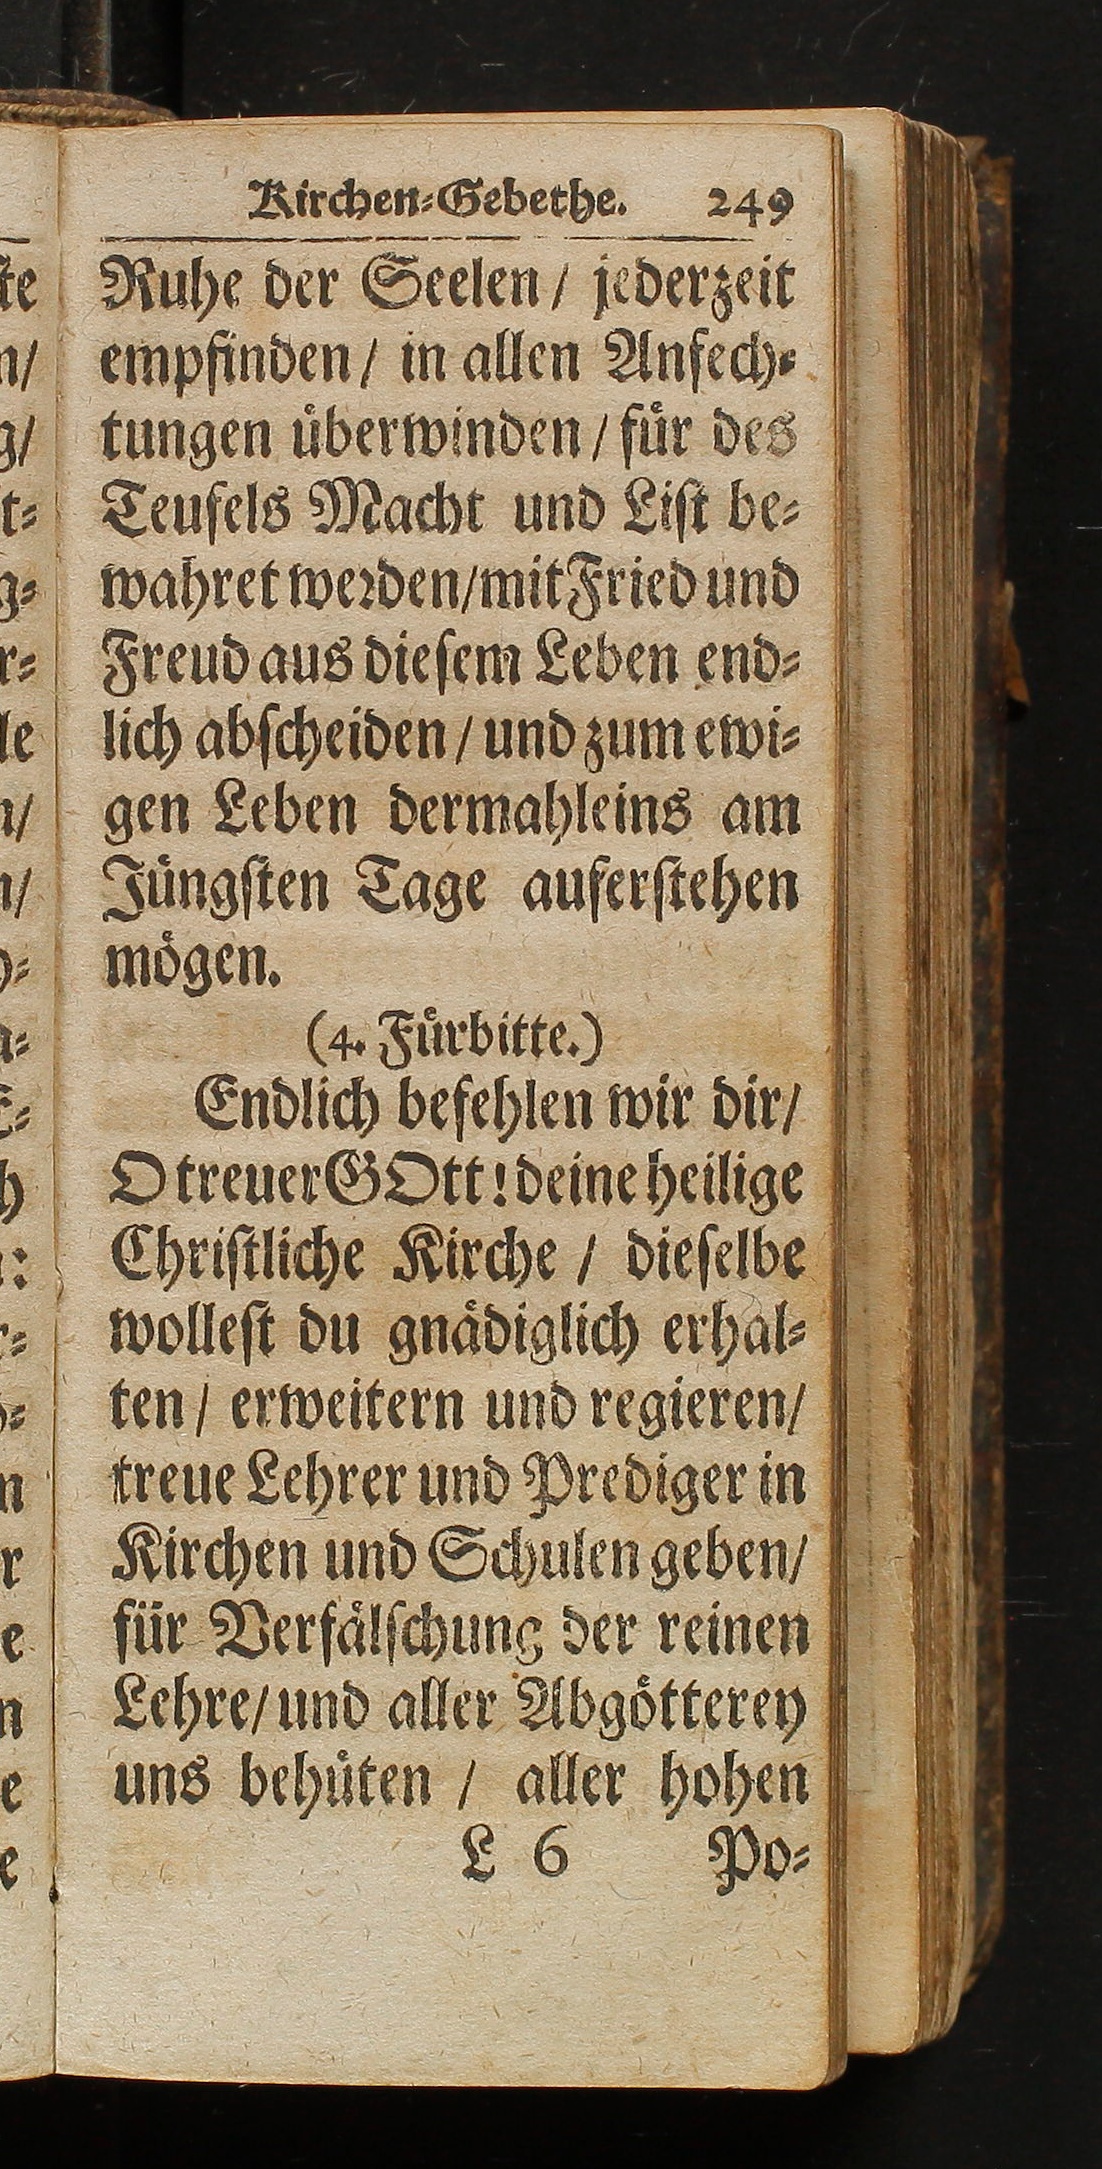 Kirchen-Gebethe. 249
Ruhe der Seelen / jederzeit
empfinden / in allen Anfech-
tungen uͤberwinden / fuͤr des
Teufels Macht und Liſt be-
wahret werden/mit Fried und
Freud aus dieſem Leben end-
lich abſcheiden / und zum ewi-
gen Leben dermahleins am
Juͤngſten Tage auferſtehen
moͤgen.
(4. Fuͤrbitte.)
Endlich befehlen wir dir/
O treuer GOtt! deine heilige
Chriſtliche Kirche / dieſelbe
wolleſt du gnaͤdiglich erhal-
ten / erweitern und regieren/
treue Lehrer und Prediger in
Kirchen und Schulen geben/
für Verfaͤlſchung der reinen
Lehre/ und aller Abgoͤtterey
uns behuͤten / aller hohen
L 6 Po-